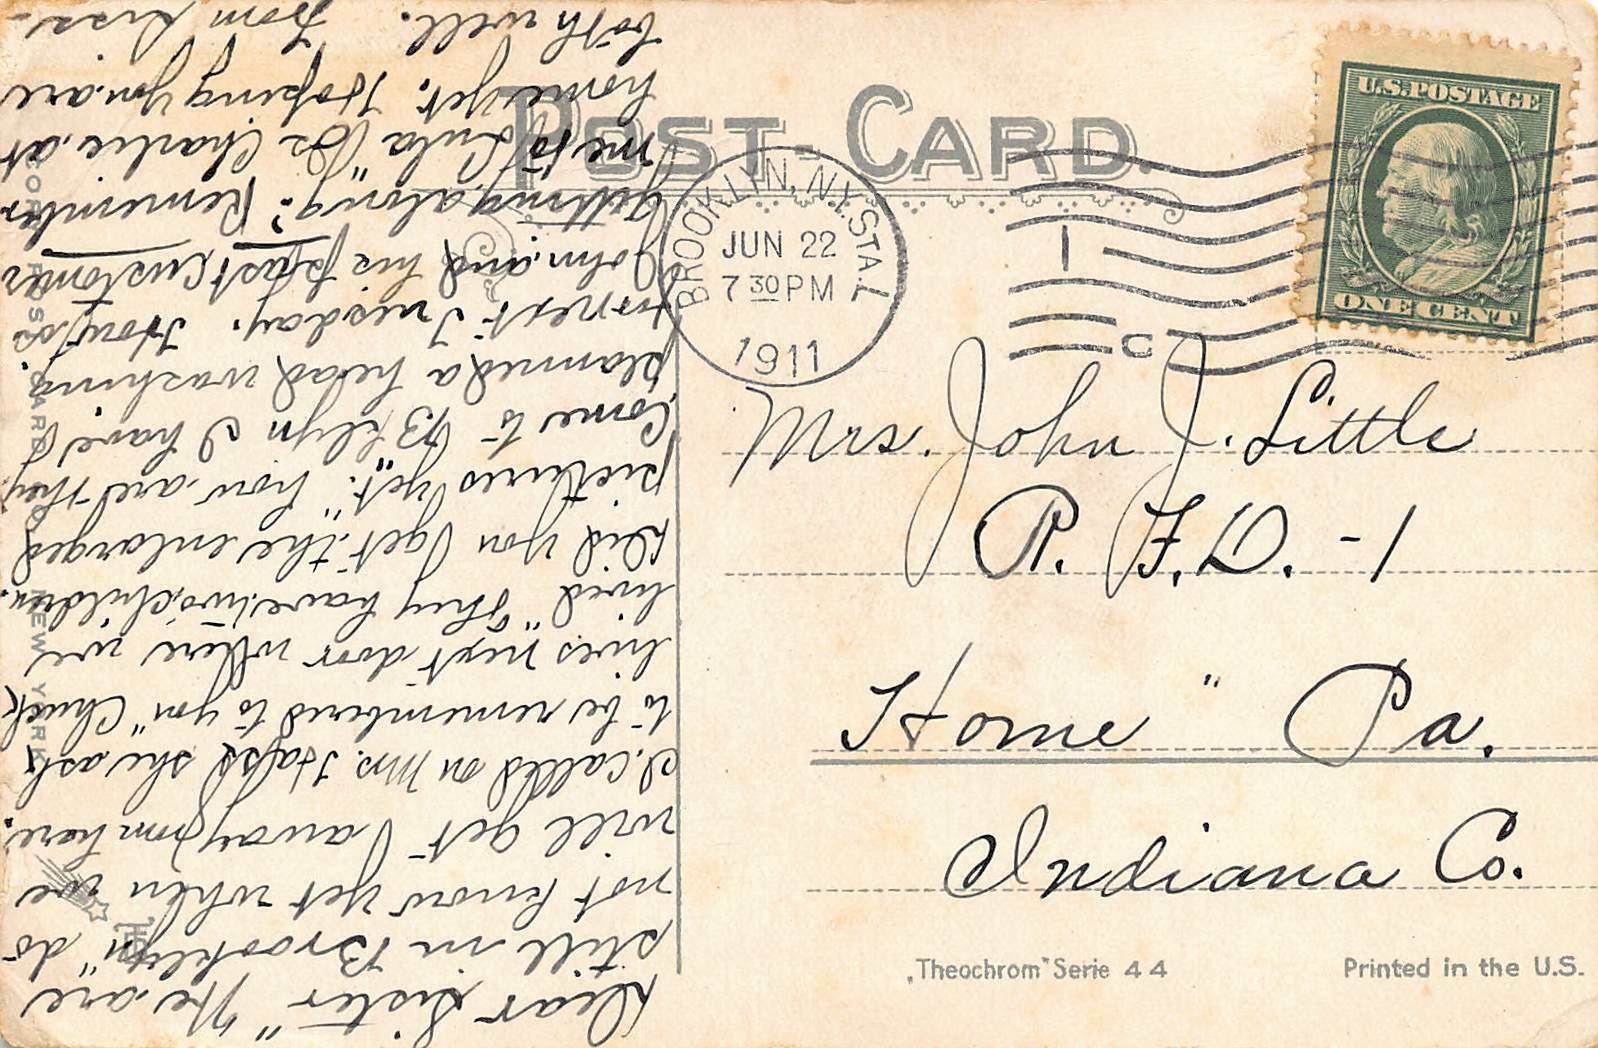 POST-CARD.
BROOKLYN, N.Y. STA. Z
JUN 22
7 30 PM
1911
1
C
U.S. POSTAGE
ONE CENT
Mrs. John J. Little
R. F. D. - 1
Home " Pa.
Indiana Co.
"Theochrom" Serie 44
Printed in the U.S.
NEW YORK
Dear Sister" We are
still in Brooklyn" do
not know yet when we
will get away from here.
I called on Mrs. she ask
to be remembered to you" Chuck
lives next door where we
lived" They have two children.
Did you get the enlarged
pictures yet." how are they
Come to Bklyn I have
planned a head washing
for next Tuesday. How is
John and his past customer
getting along". Remember
me to Lula & Charlie at
home yet. Hoping you are
both well. From Siss-